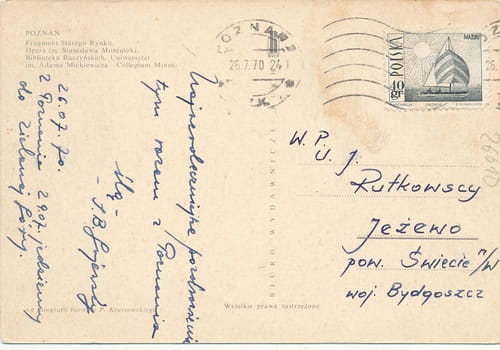 POZNAŃ
Fragment Starego Rynku.
Opera im. Stanisława Moniuszki.
Biblioteka Raczyńskich. Uniwersytet
im. Adama Mickiewicza - Collegium Minus.
POZNAŃ 2
26.7.70 24
MAZURY
POLSKA
40 gr
26.07.70.
Najserdeczniejsze pozdrowienia
tym razem z Poznania
ślą -
z Poznania 29.07. jedziemy
do Zielonej Góry.
W. P.
U. J.
Rutkowscy
Jeżewo
pow. Świecie n/W
woj. Bydgoszcz
BIURO WYDAWNICZE
Wszelkie prawa zastrzeżone
P. Krassowskiego